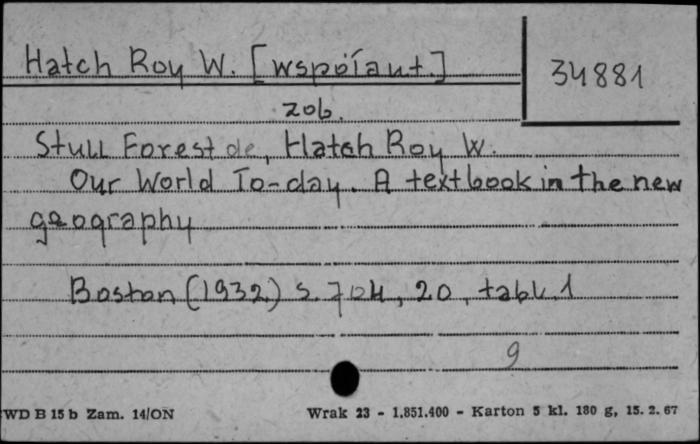 Hatch Roy W. [współaut.]
34881
zob.
Stull Forest de, Hatch Roy W.
Our World To-day. A textbook in the new
geography
Boston (1932) s. 704, 20, tabl. 1
9
WD B 15 b Zam. 14/ON
Wrak 23 - 1.851.400 - Karton 5 kl. 180 g, 15. 2. 67